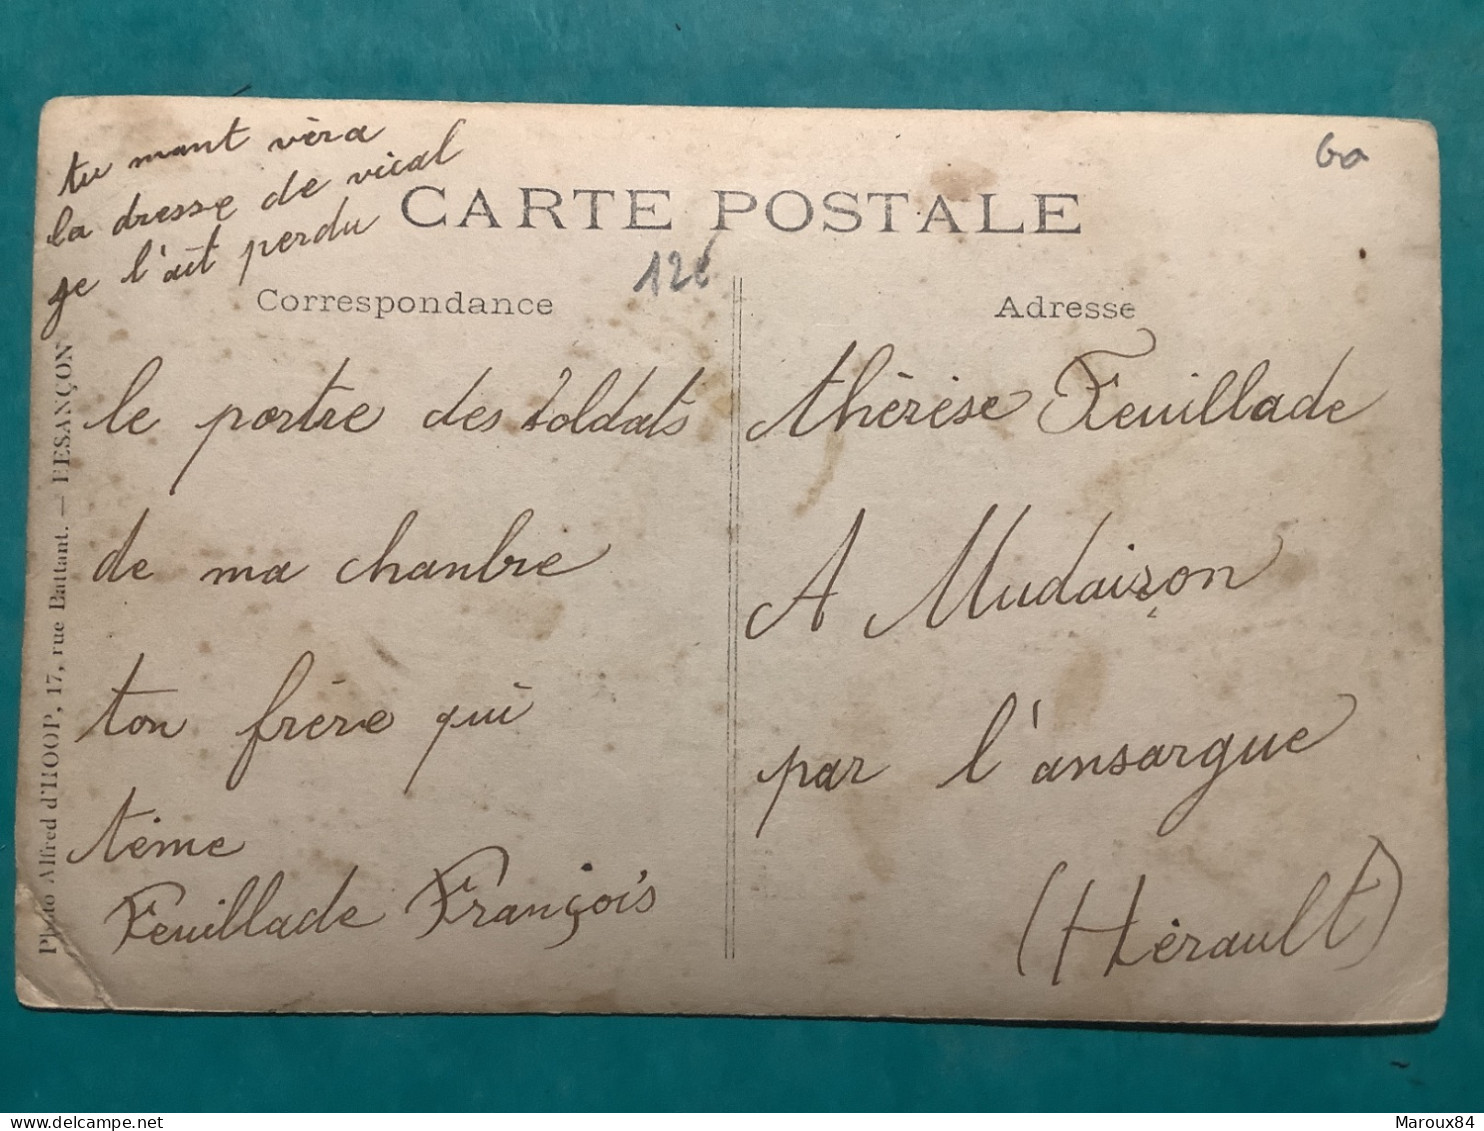 tu mant vèra
la dresse de vical
ge l'ait perdu
60
CARTE POSTALE
12€
Correspondance
Adresse
le portre des soldats
de ma chanbre
ton frère qui
tème
Feuillade François
thérèse Feuillade
A Mudaizon
par l'ansargue
(Hérault)
Photo Alfred d'HOOP, 17, rue Battant. — BESANÇON
Maroux84